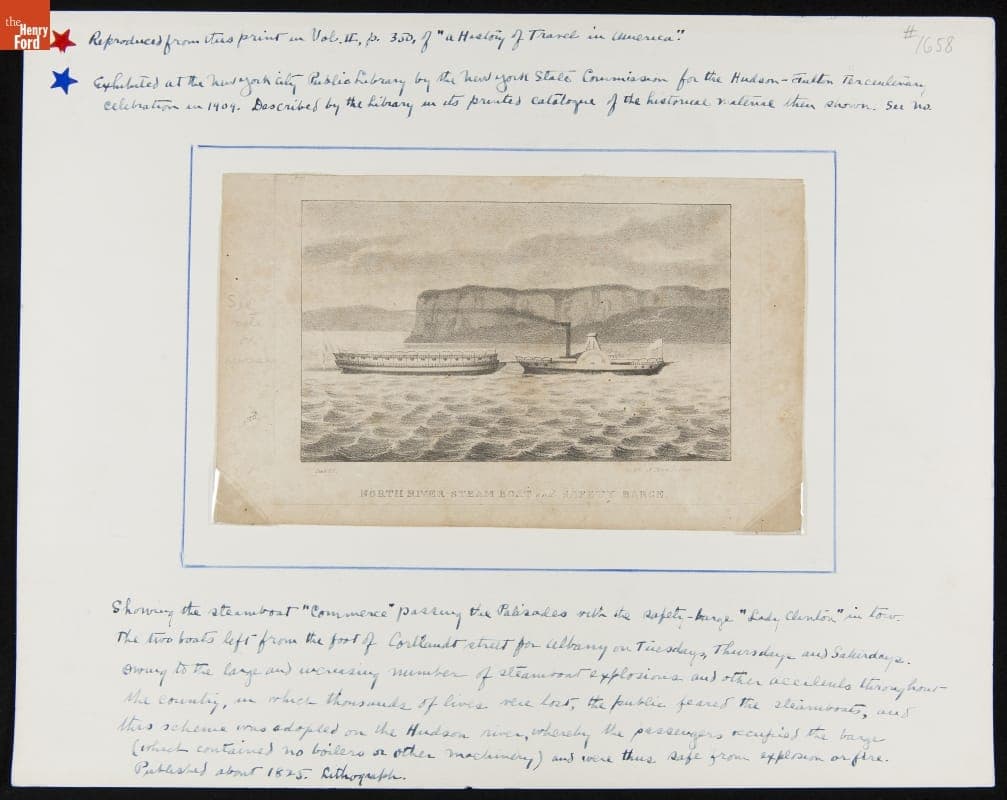 the
Henry
Ford
#1658
Reproduced from this print in Vol. II, p. 350, of "a History of Travel in America".
Exhibited at the New York City Public Library by the New York State Commission for the Hudson-Fulton Tercentenary
celebration in 1909. Described by the Library in its printed catalogue of the historical material then shown. See no.
See
NORTH RIVER STEAM BOAT and SAFETY BARGE.
Showing the steamboat "Commerce" passing the Palisades with the safety-barge "Lady Clinton" in tow.
The two boats left from the foot of Cortlandt street for Albany on Tuesdays, Thursdays and Saturdays.
Owing to the large and increasing number of steamboat explosions and other accidents throughout
the country, in which thousands of lives were lost, the public feared the steamboats, and
this scheme was adopted on the Hudson river, whereby the passengers occupied the barge
(which contained no boilers or other machinery) and were thus safe from explosion or fire.
Published about 1825. Lithograph.